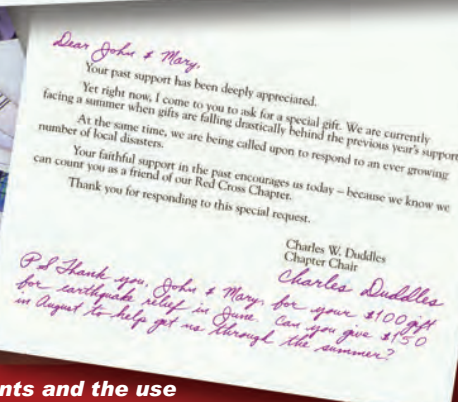 Dear John & Mary,
Your past support has been deeply appreciated.
Yet right now, I come to you to ask for a special gift. We are currently
facing a summer when gifts are falling drastically behind the previous year's support
At the same time, we are being called upon to respond to an ever growing
number of local disasters.
Your faithful support in the past encourages us today – because we know we
can count you as a friend of our Red Cross Chapter.
Thank you for responding to this special request.
Charles W. Duddles
Chapter Chair
Charles Duddles
PS Thank you, John & Mary, for your $100 gift
for earthquake relief in June. Can you give $150
in August to help get us through the summer?
nts and the use